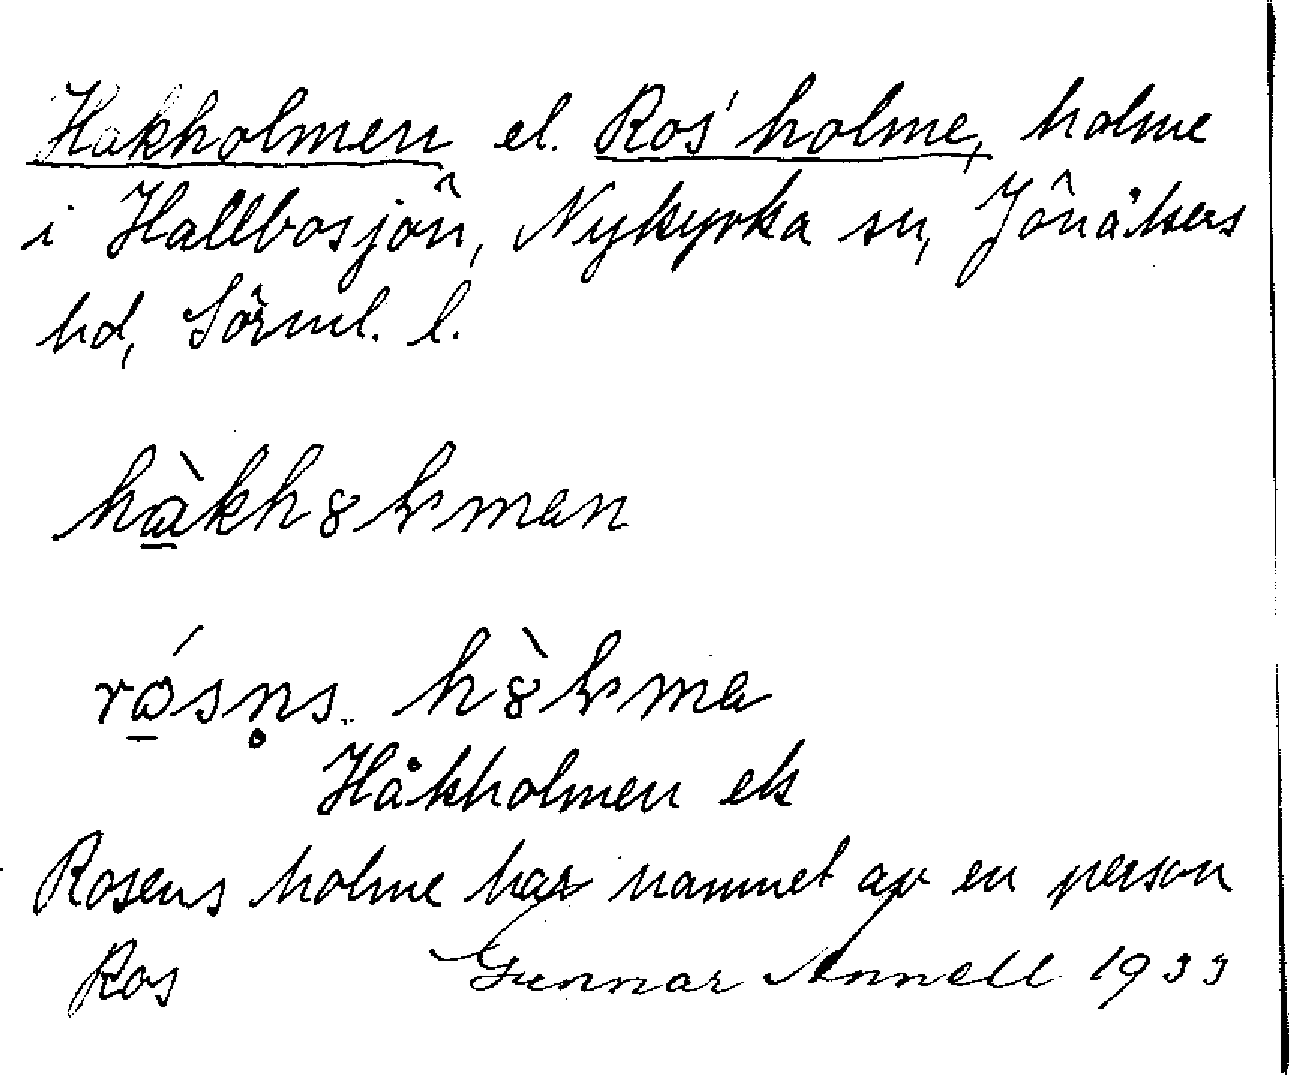 Hakholmen el. Ros' holme, holme
i Hallbosjön, Nykyrka sn, Jönåkers
hd, Sörml. l.
hàkh8lman
rósn̥s h8̀lma
Håkholmen ek
Rosens holme har namnet av en person
Ros Gunnar Annell 1933